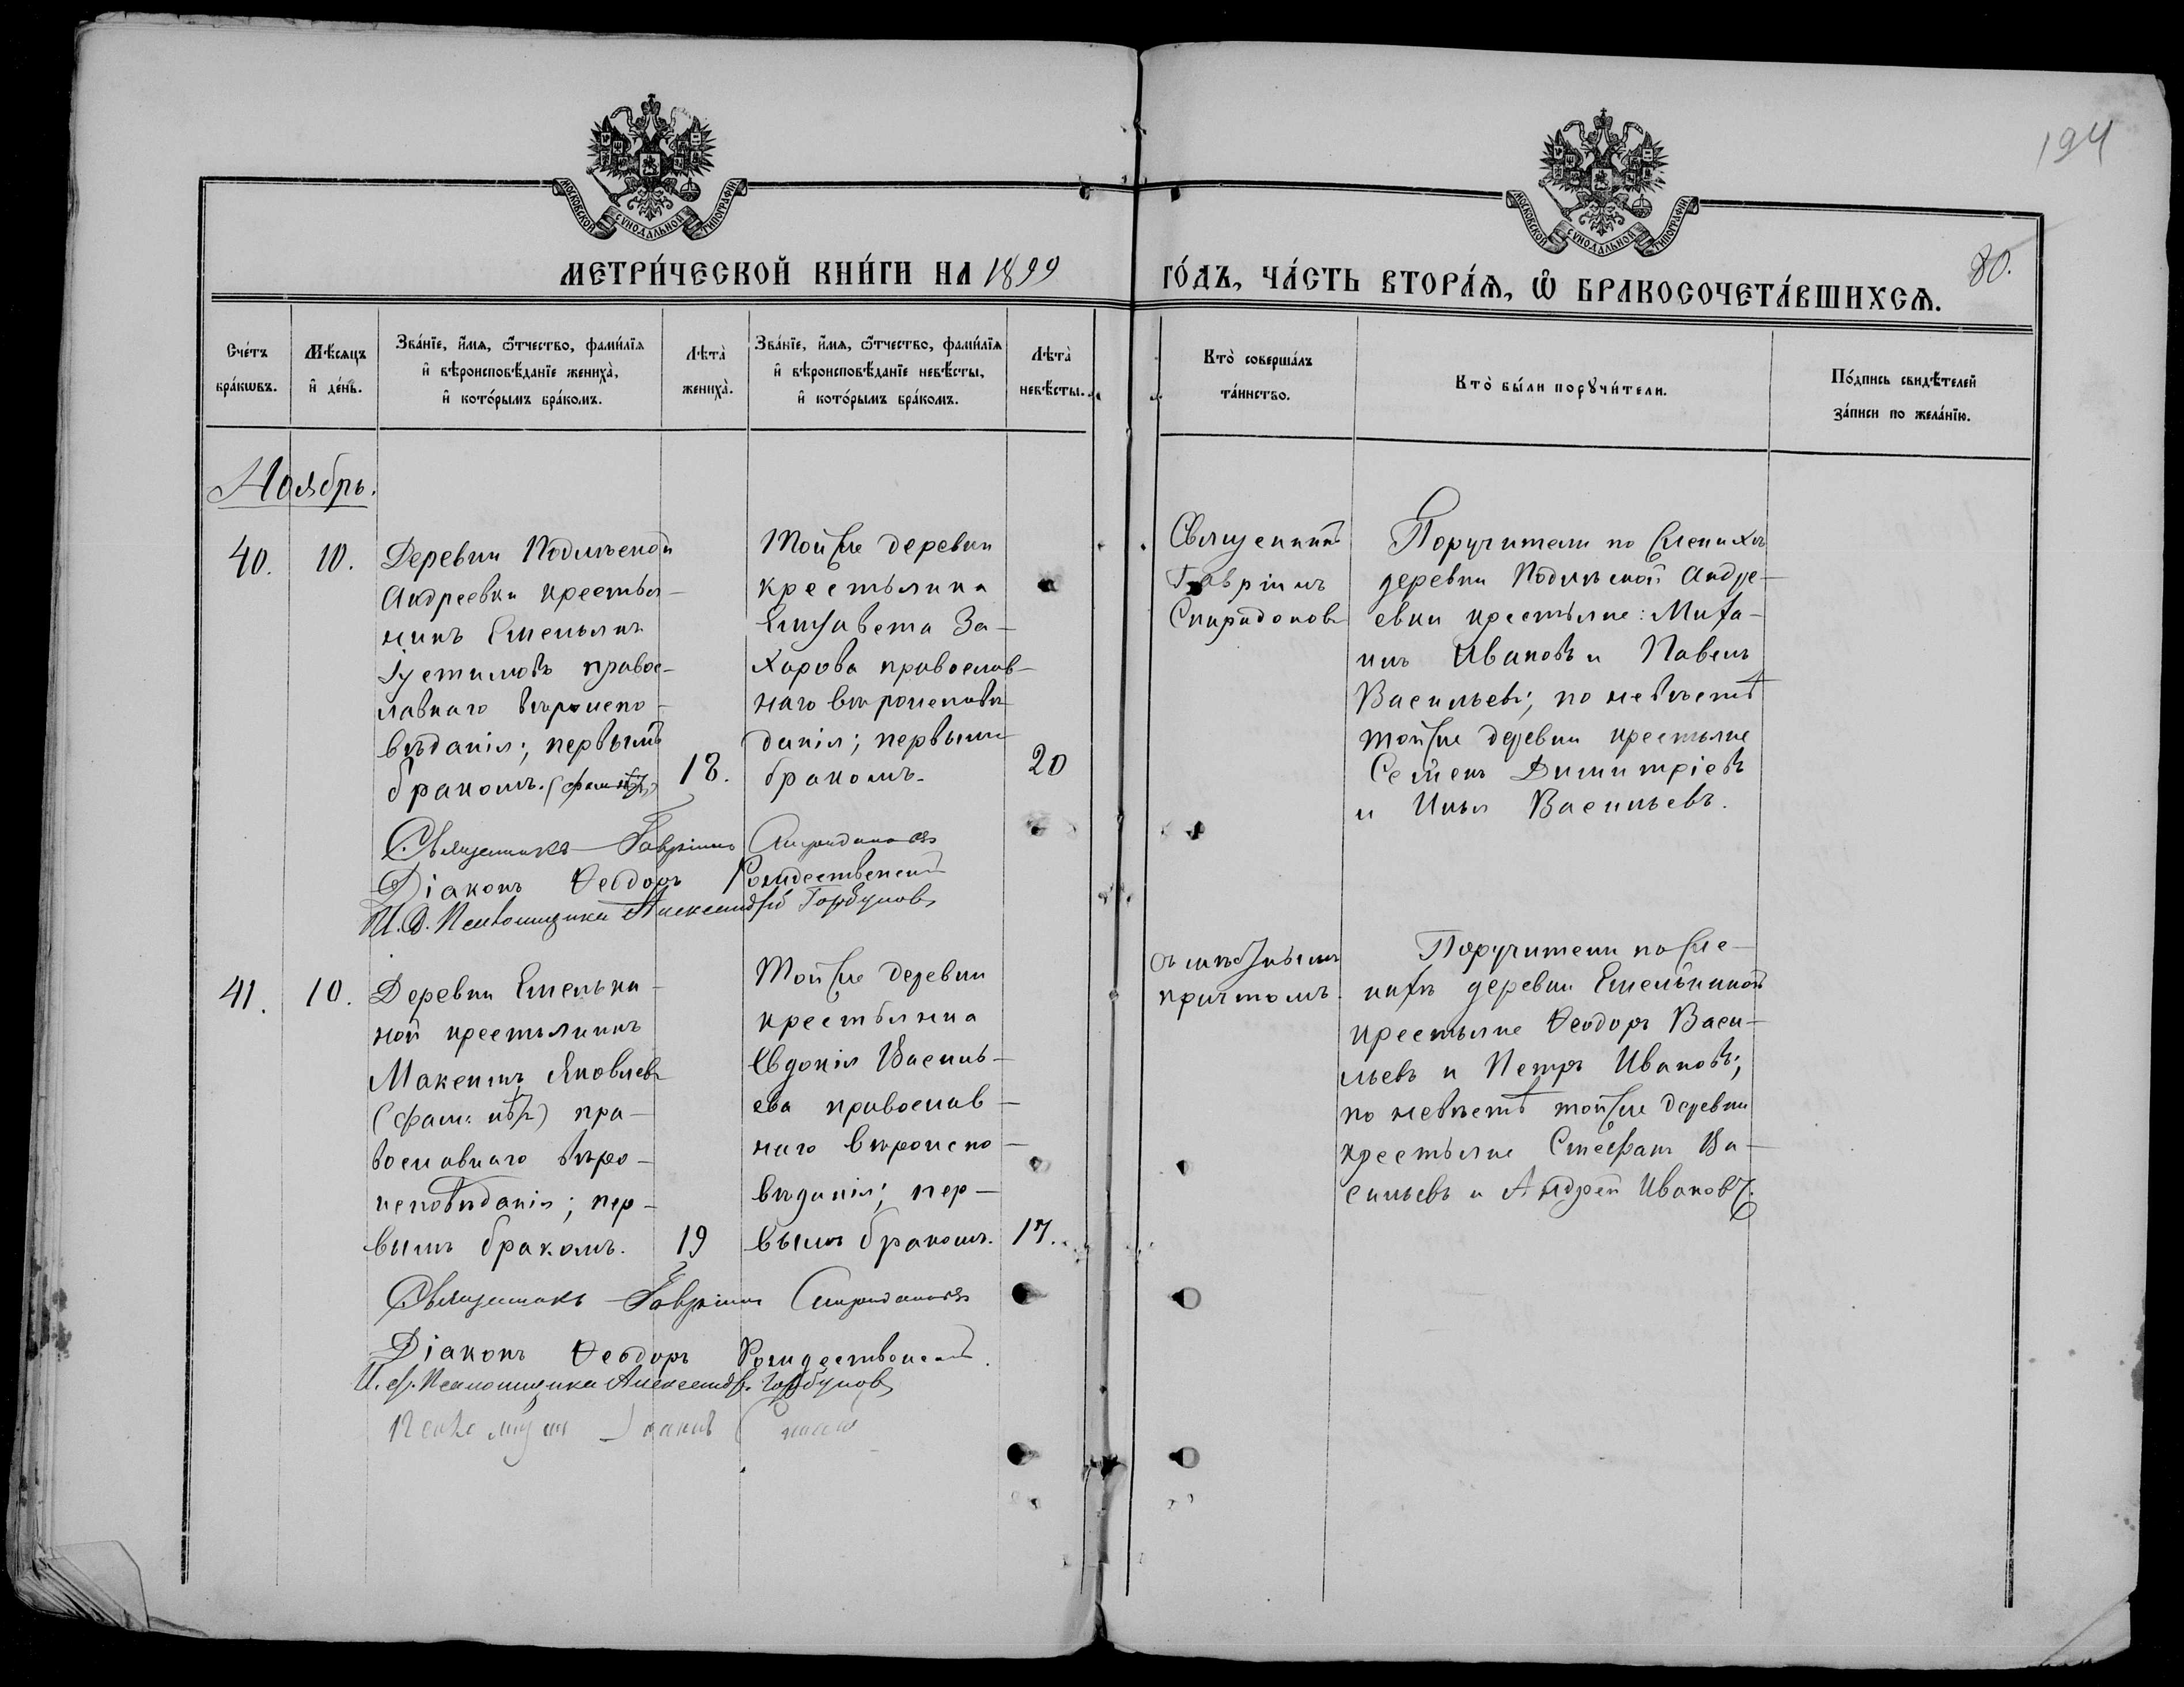 194
МОСКОВСКОЙ СѴНОДАЛЬНОЙ ТИПОГРАФІИ
МОСКОВСКОЙ СѴНОДАЛЬНОЙ ТИПОГРАФІИ
МЕТРИ́ЧЕСКОЙ КНИ́ГИ НА 1899
ГО́ДЪ, ЧА́СТЬ ВТОРА́Ѧ, Ѡ҆ БРАКОСОЧЕТА́ВШИХСѦ.
80.
Сче́тъ
бра́кѡвъ.
Мѣ́сяцъ
и҆ де́нь.
Зва́нїе, и҆́мѧ, ѻ҆́тчество, фами́лїѧ
и҆ вѣроисповѣ́данїе жениха̀,
и҆ кото́рымъ бра́комъ.
Лѣта̀
жениха̀.
Зва́нїе, и҆́мѧ, ѻ҆́тчество, фами́лїѧ
и҆ вѣроисповѣ́данїе невѣ́сты,
и҆ кото́рымъ бра́комъ.
Лѣта̀
невѣ́сты.
Кто̀ соверша́лъ
та́инство.
Кто̀ бы́ли порꙋчи́тели.
По́дпись свидѣ́телей
за́писи по жела́нїю.
Ноябрь.
40.
10.
Деревни Подлѣсной
Андреевки крестья-
нинъ Емельянъ
Іустиновъ правос-
лавнаго вѣроиспо-
вѣданія; первымъ
бракомъ.
18.
Той же деревни
крестьянка
Елизавета За-
харова православ-
наго вѣроисповѣ-
данія; первымъ
бракомъ.
20
Священникъ
Гавріилъ
Спиридоновъ
Поручители по женихѣ
деревни Подлѣсной Андре-
евки крестьяне: Миха-
илъ Ивановъ и Павелъ
Васильевъ; по невѣстѣ
той же деревни крестьяне
Семенъ Димитріевъ
и Илья Васильевъ.
Священникъ Гавріилъ Спиридоновъ
Діаконъ Ѳеодоръ Рождественскій
И. д. Псаломщика Александръ Горбуновъ
41.
10.
Деревни Емельки-
ной крестьянинъ
Максимъ Яковлевъ
(фам. нѣтъ) пра-
вославнаго вѣро-
исповѣданія; пер-
вымъ бракомъ.
19
Той же деревни
крестьянка
Евдокія Василь-
ева православ-
наго вѣроиспо-
вѣданія; пер-
вымъ бракомъ.
17.
причтомъ.
Поручители по же-
нихѣ деревни Емелькиной
крестьяне Ѳеодоръ Васи-
льевъ и Петръ Ивановъ;
по невѣстѣ той же деревни
крестьяне Стефанъ Ва-
сильевъ и Андрей Ивановъ.
Священникъ Гавріилъ Спиридоновъ
Діаконъ Ѳеодоръ Рождественскій.
И. д. Псаломщика Александръ Горбуновъ